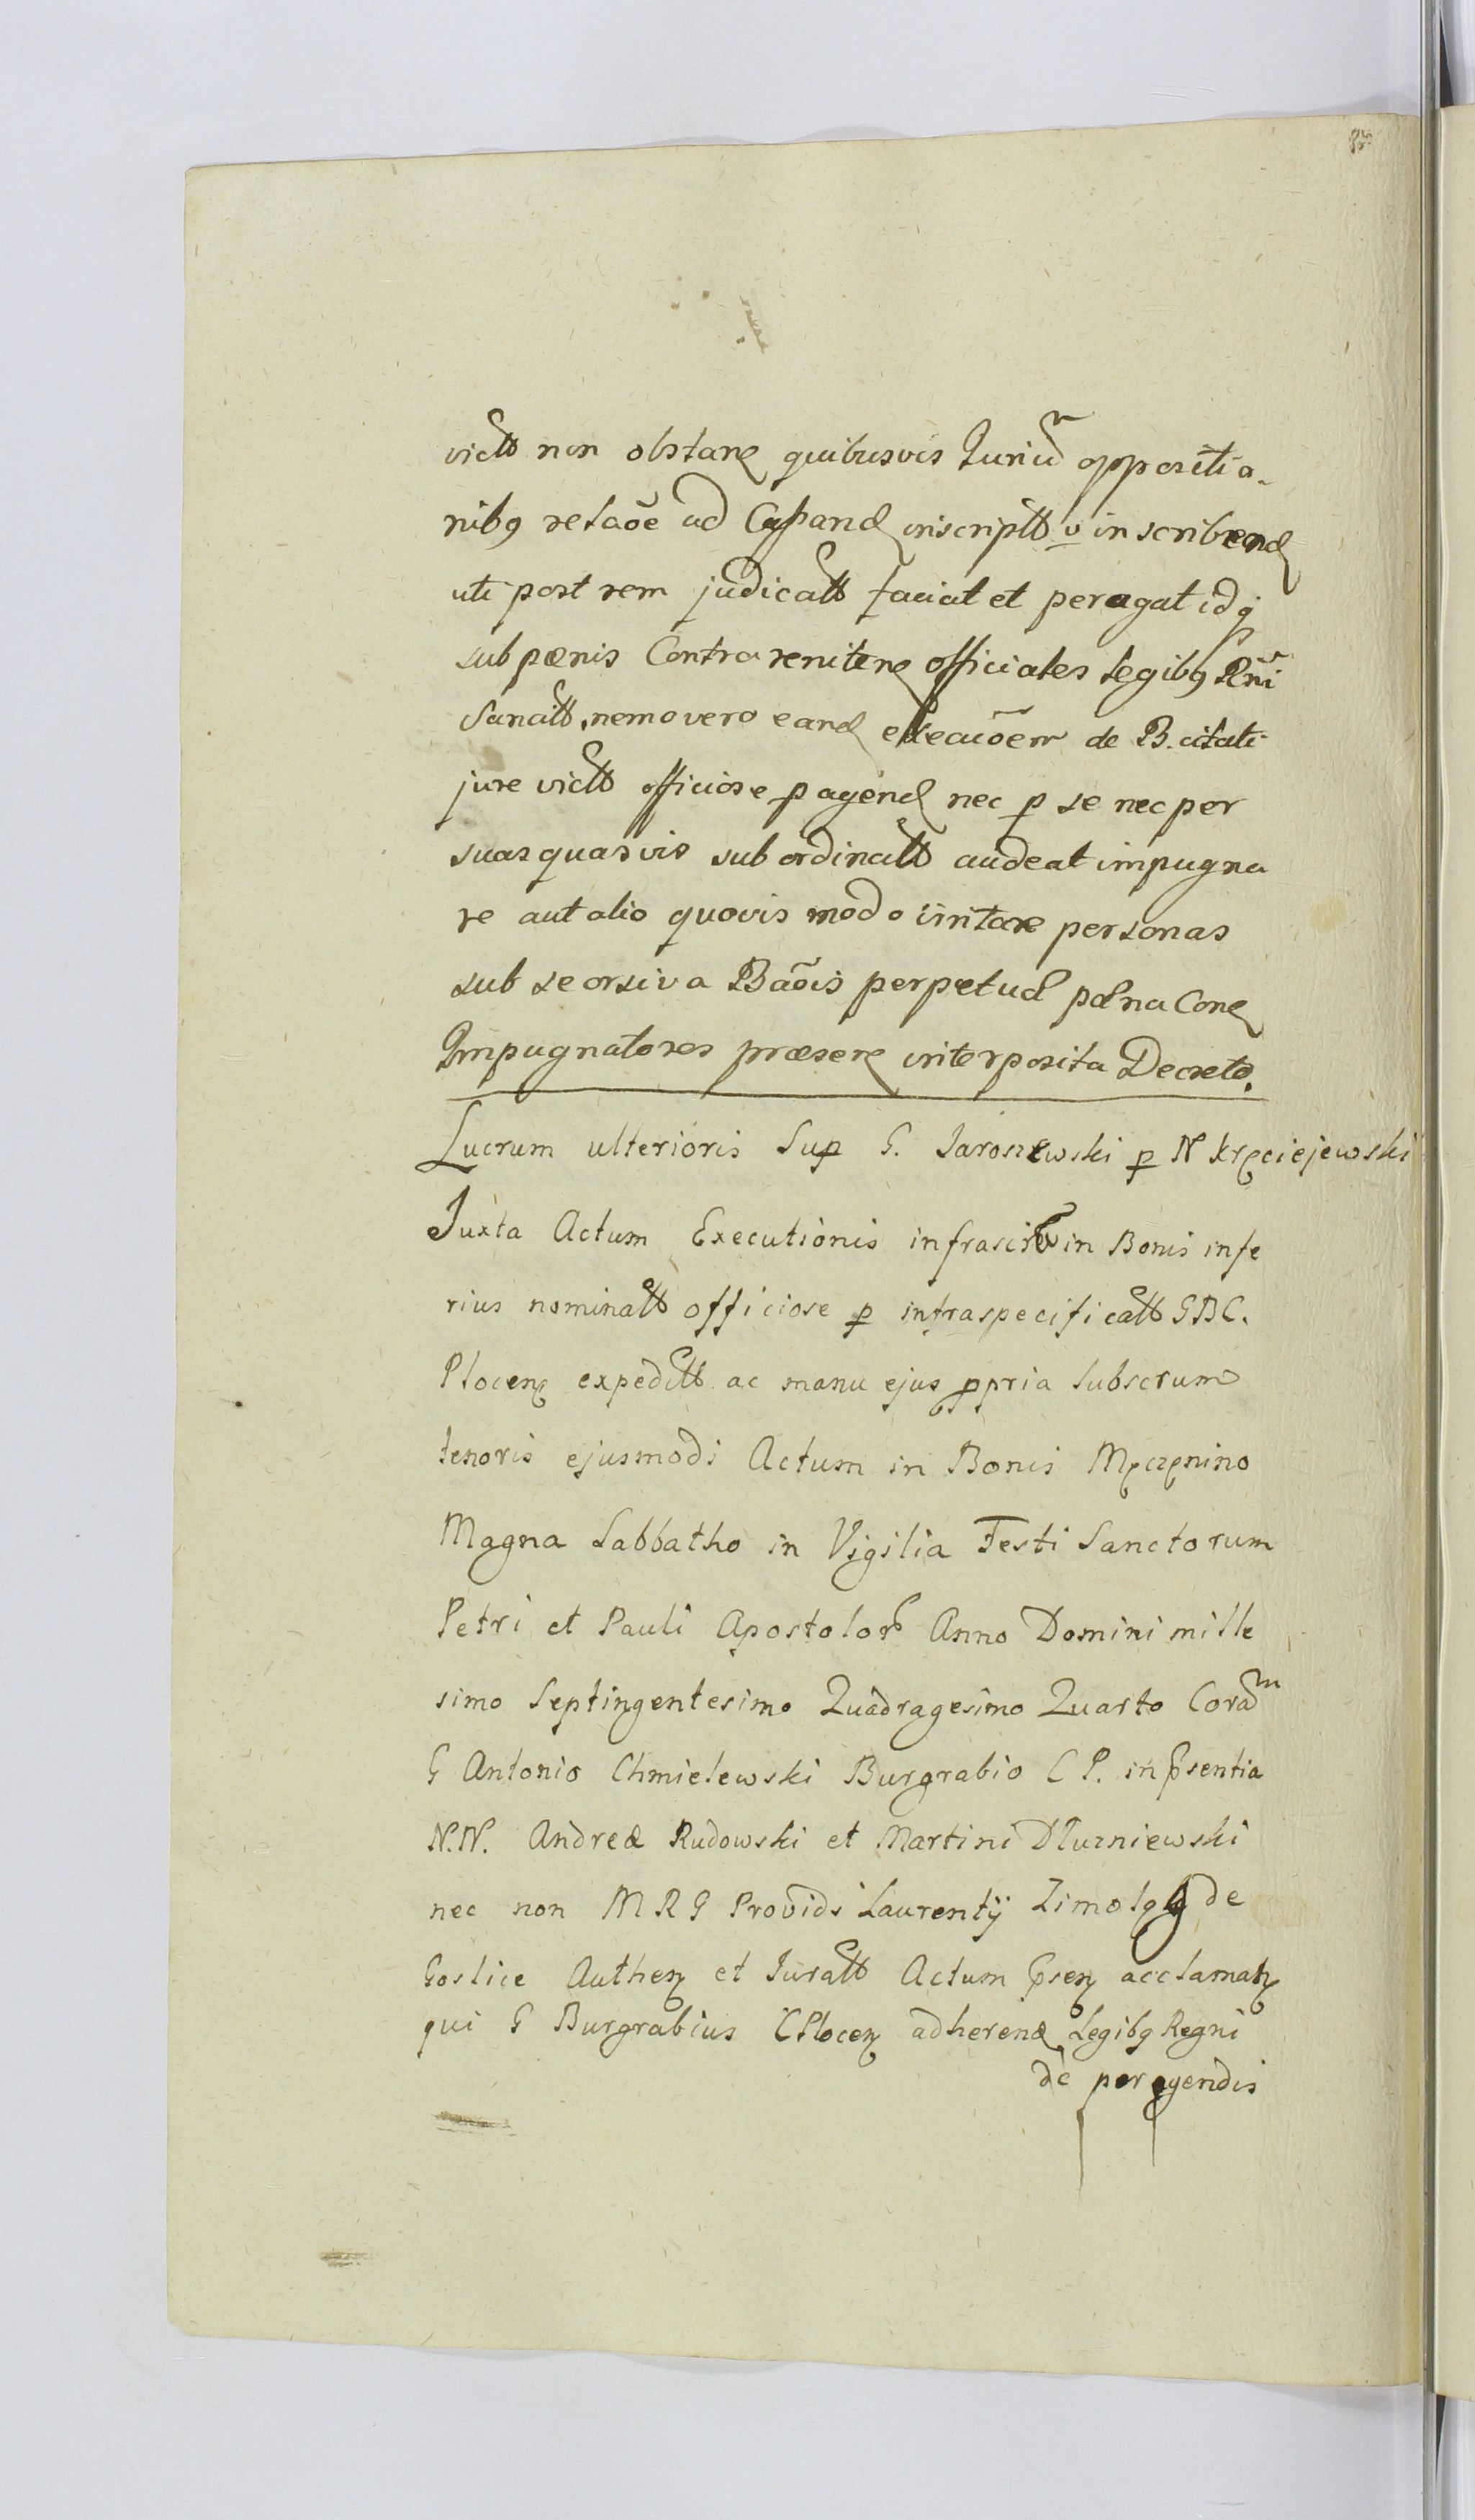 victt non obstanę quibusvis Juriũm oppositio-
nibꝯ retaõe ad Capiand inscriptt v̲ inscribend
uti post rem judicatt faciat et peragat idq̃
sub pœnis Contra renitenę officiales Legibꝯ Rñi
Sancitt, nemo vero eand execuõem de B. citati
jure victt officiose ꝑagend nec ꝑ se nec per
suas quasvis subordinatt audeat impugna
re aut alio quovis modo irritare personas
sub seorsiva Bãois perpetuæ pœna Conę
Impugnatores præsenę interposita Decreto.
Lucrum ulterioris Suꝑ G. Jaroszewski ꝑ N Krzęciejewski
Juxta Actum Executionis infrascrũ in Bonis infe
rius nominatt officiose ꝑ infraspecificatt GBC.
Plocenę expeditt ac manu ejus ꝓpria Subscrum
tenoris ejusmodi Actum in Bonis Męczęnino
Magna Sabbatho in Vigilia Festi Sanctorum
Petri et Pauli Apostolor Anno Domini mille
simo Septingentesimo Quadragesimo Quarto Coram
G Antonio Chmielewski Burgrabio C P. in Pñsentia
N.N. Andreæ Rudowski et Martini Dłuzniewski
nec non M R G Providi Laurentij Zimoląg de
Goslice Authenę et Juratt Actum Pñsenę acclamatę
qui G Burgrabius CPlocenę adherend Legibꝯ Regni
de peragendis